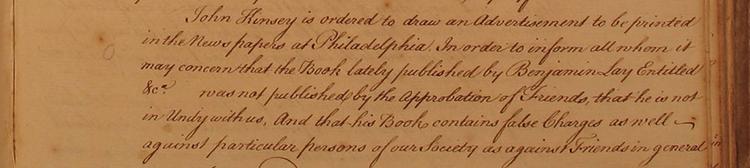 John Kinsey is ordered to draw an Advertisement to be printed
in the News papers at Philadelphia. In order to inform all whom it
may concern that the Book lately published by Benjamin Lay Entitled
&c.a was not published by the Approbation of Friends, that he is not
in Unity with us. And that his Book contains false Charges as well
against particular persons of our Society as against Friends in general